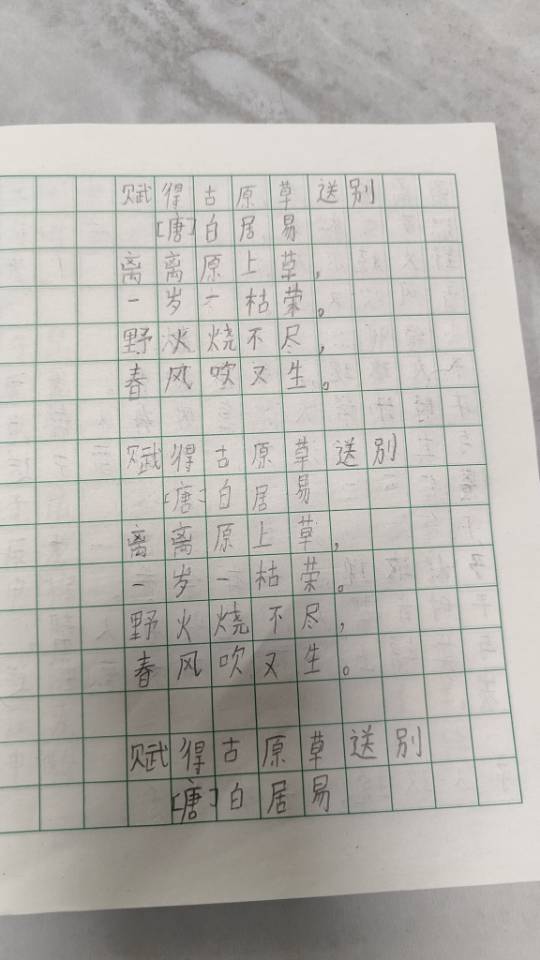 赋得古原草送别
[唐]白居易
离离原上草,
一岁一枯荣。
野火烧不尽,
春风吹又生。
赋得古原草送别
[唐]白居易
离离原上草,
一岁一枯荣。
野火烧不尽,
春风吹又生。
赋得古原草送别
[唐]白居易